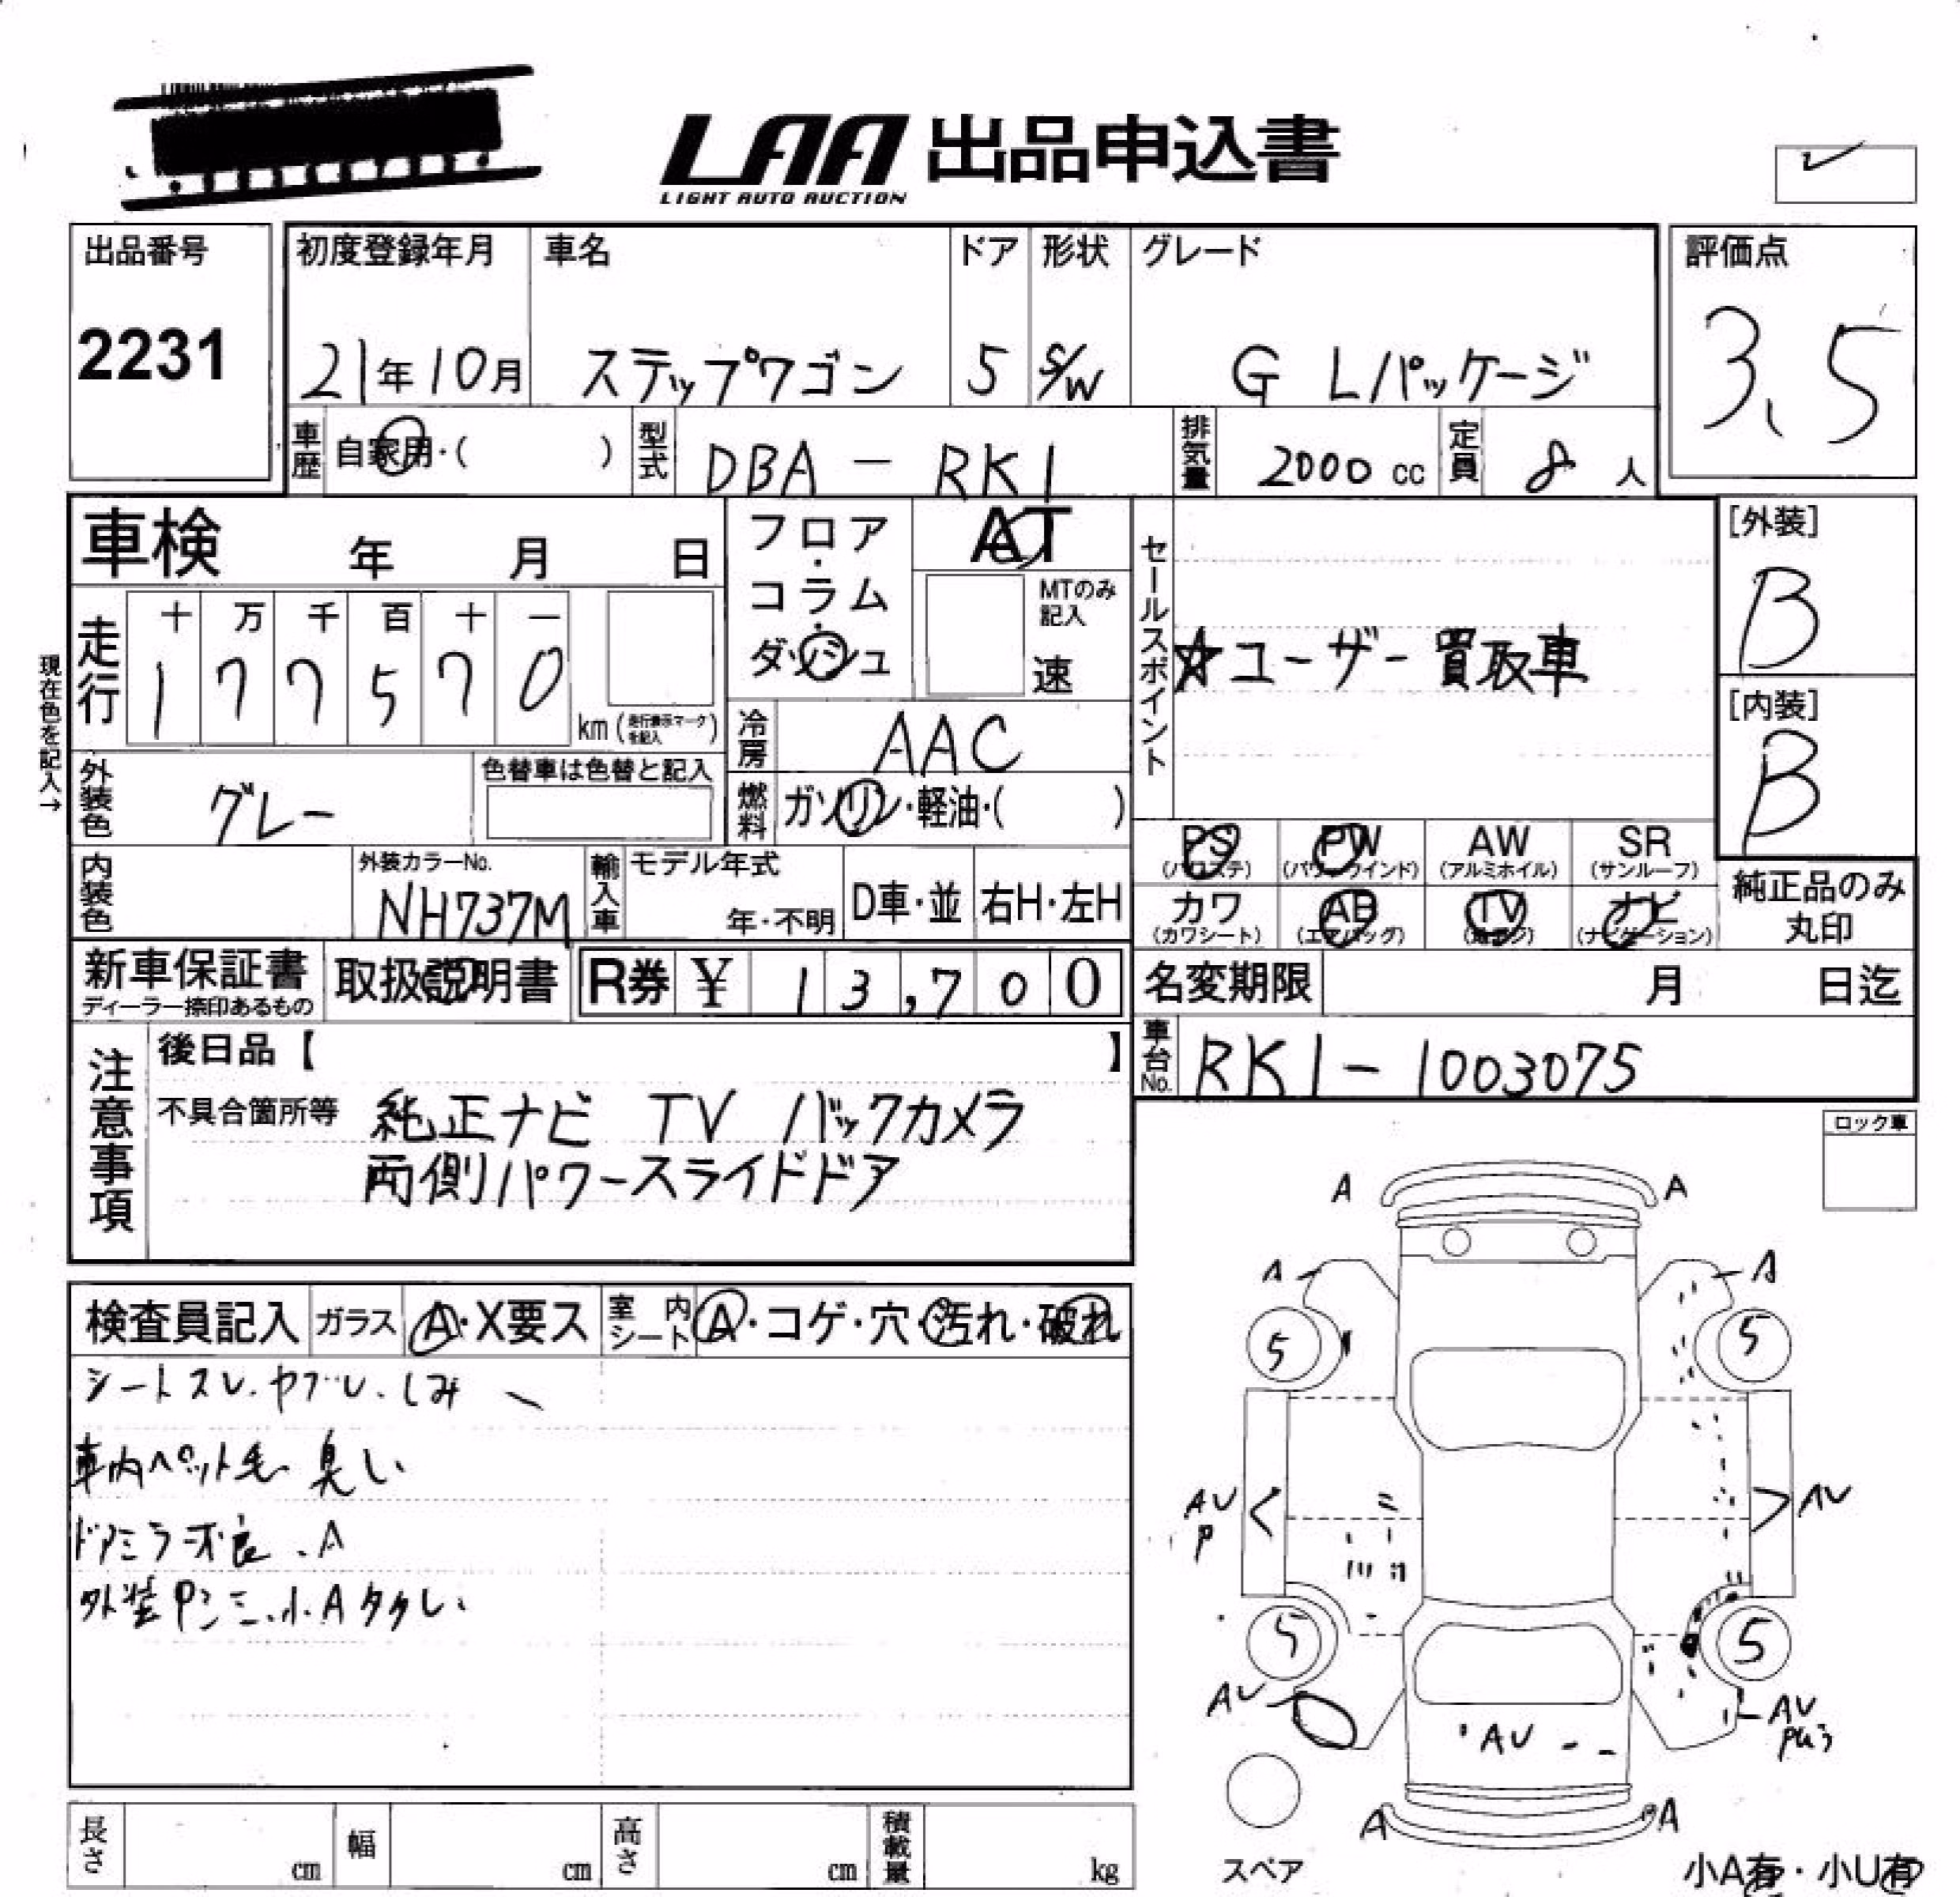 LAA 出品申込書
LIGHT AUTO AUCTION
出品番号
2231
初度登録年月 車名 ドア 形状 グレード
21年10月 ステップワゴン 5 S/W G Lパッケージ
評価点
3.5
車歴 自家用・( ) 型式 DBA-RK1 排気量 2000 cc 定員 8 人
車検 年 月 日
フロア・コラム・ダッシュ
AT
MTのみ記入
速
セールスポイント
☆ユーザー買取車
[外装]
B
[内装]
B
現在色を記入→
走行 十 万 千 百 十 一
1 7 7 5 7 0
km (走行表示マークを記入)
冷房 AAC
外装色 グレー
色替車は色替と記入
燃料 ガソリン・軽油・( )
内装色
外装カラーNo.
NH737M
輸入車 モデル年式
年・不明
D車・並 右H・左H
PS (パワステ) PW (パワーウインド) AW (アルミホイル) SR (サンルーフ)
カワ (カワシート) AB (エアバッグ) TV (地デジ) ナビ (ナビゲーション)
純正品のみ丸印
新車保証書
ディーラー捺印あるもの
取扱説明書
R券 ¥ 13,700
名変期限 月 日迄
車台No. RK1-1003075
注意事項
後日品【 】
不具合箇所等 純正ナビ TV バックカメラ
両側パワースライドドア
ロック車
検査員記入 ガラス A・X要ス 室内シート A・コゲ・穴・汚れ・破れ
シートスレ.ヤブレ.しみ
車内ペット毛 臭い
ドアミラー不良 .A
外装
小.A
A A
A A
5 5
AU
P
AU
5 5
AU
AU
AU
A A
スペア
小A有・小U有
長さ cm 幅 cm 高さ cm 積載量 kg